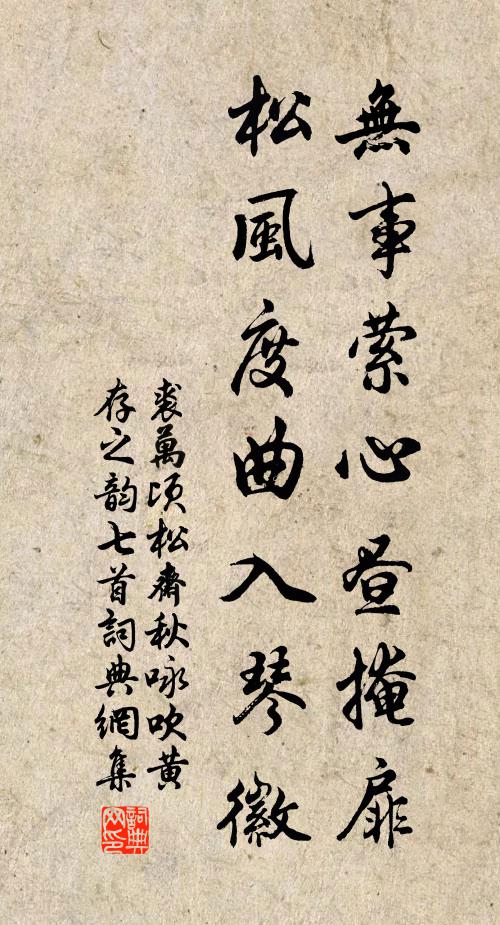 無事縈心晝掩扉
松風度曲入琴徽
裘萬頃松齋秋咏吹黃
存之韵七首詞典網集
詞典
网印